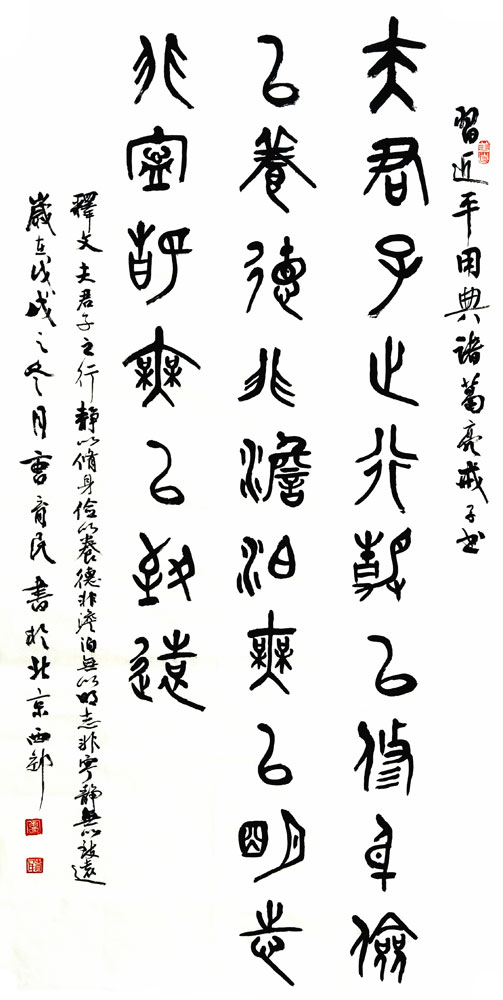 習近平用典諸葛亮戒子書
夫君子之行静以修身儉
以養德非澹泊無以明志
非寧靜無以致遠
釋文夫君子之行靜以脩身儉以養德非澹泊無以明志非寧靜無以致遠
歲在戊戌之冬月曹育民書於北京西部